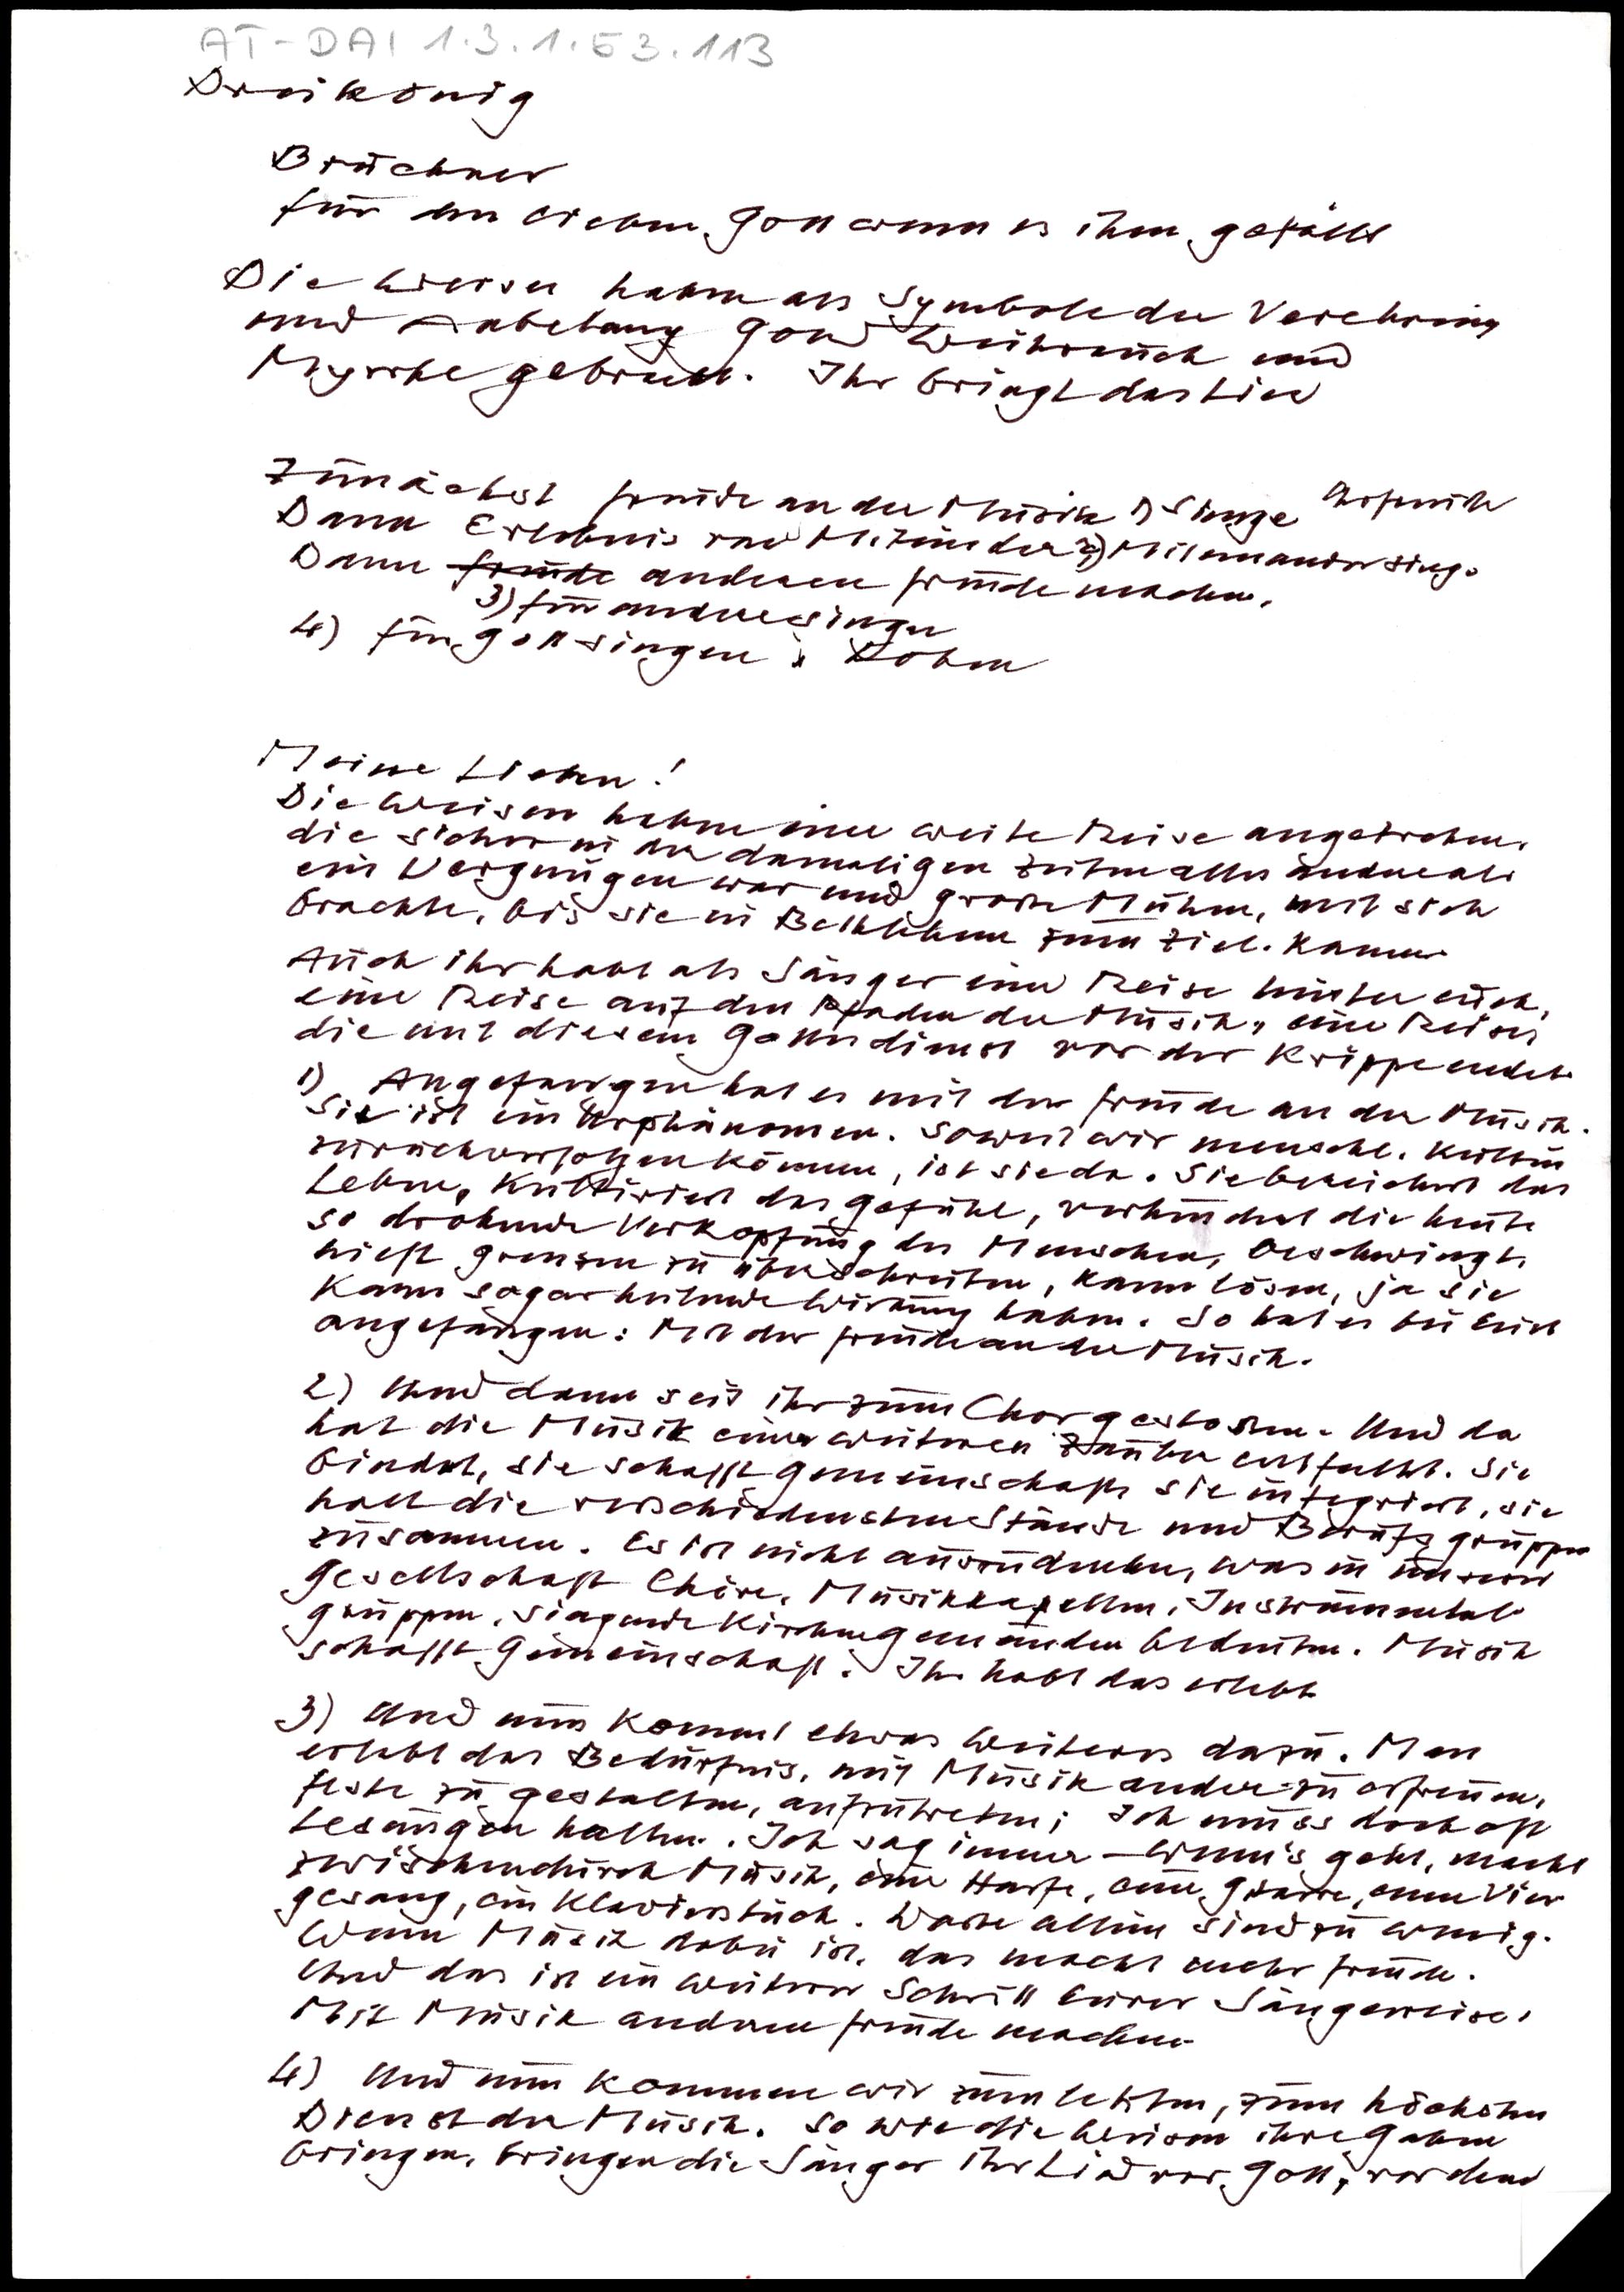 AT-DAI 1.3.1.53.113
Dreikönig
Bruckner
für den lieben Gott wenn es ihm gefällt
Die Weisen haben als Symbole der Verehrung
und Anbetung Gold Weihrauch und
Myrrhe gebracht. Ihr bringt das Lied
Zunächst Freude an der Musik 1) Singe
Dann Erlebnis des Miteinander 2) Miteinander sing.
Dann Freude anderen Freude machen.
3) für andere singen
4) für Gott singen: Loben
Meine Lieben!
Die Weisen haben eine weite Reise angetreten,
die sicher in den damaligen Zeiten alles andere als
ein Vergnügen war und große Mühen, mit sich
brachte, bis sie in Bethlehem zum Ziel kamen
Auch ihr habt als Sänger eine Reise hinter euch,
eine Reise auf den Pfaden der Musik, eine Reise,
die mit diesem Gottesdienst vor der Krippe endet.
1) Angefangen hat es mit der Freude an der Musik.
Sie ist ein Urphänomen. Soweit wir menschl. Kultur
zurückverfolgen können, ist sie da. Sie bereichert das
Leben, kultiviert das Gefühl, verhindert die heute
so drohende Verkopfung des Menschen, beschwingt,
hilft Grenzen zu überschreiten, kann lösen, ja sie
kann sogar heilende Wirkung haben. So hat es bei Euch
angefangen: Mit der Freude an der Musik.
2) Und dann seid ihr zum Chor gestossen. Und da
hat die Musik einen weiteren Zauber entfaltet. Sie
bindet, sie schafft Gemeinschaft, sie integriert, sie
hält die verschiedensten Stände und Berufsgruppen
zusammen. Es ist nicht auszudenken, was in unserer
Gesellschaft Chöre, Musikkapellen, Instrumental-
gruppen, singende Kirchengemeinden bedeuten. Musik
schafft Gemeinschaft. Ihr habt das erlebt
3) Und nun kommt etwas Weiteres dazu. Man
erlebt das Bedürfnis, mit Musik andere zu erfreuen,
Feste zu gestalten, aufzutreten; Ich muss doch oft
Lesungen halten. Ich sag immer – wenn's geht, macht
zwischendurch Musik, eine Harfe, eine Gitarre, einen Vier
gesang, ein Klavierstück. Worte allein sind zu wenig.
Wenn Musik dabei ist, das macht mehr Freude.
Und das ist ein weiterer Schritt Eurer Sängerreise,
Mit Musik anderen Freude machen.
4) Und nun kommen wir zum letzten, zum höchsten
Dienst der Musik. So wie die Weisen ihre Gaben
bringen, bringen die Sänger ihr Lied vor Gott, vor dem